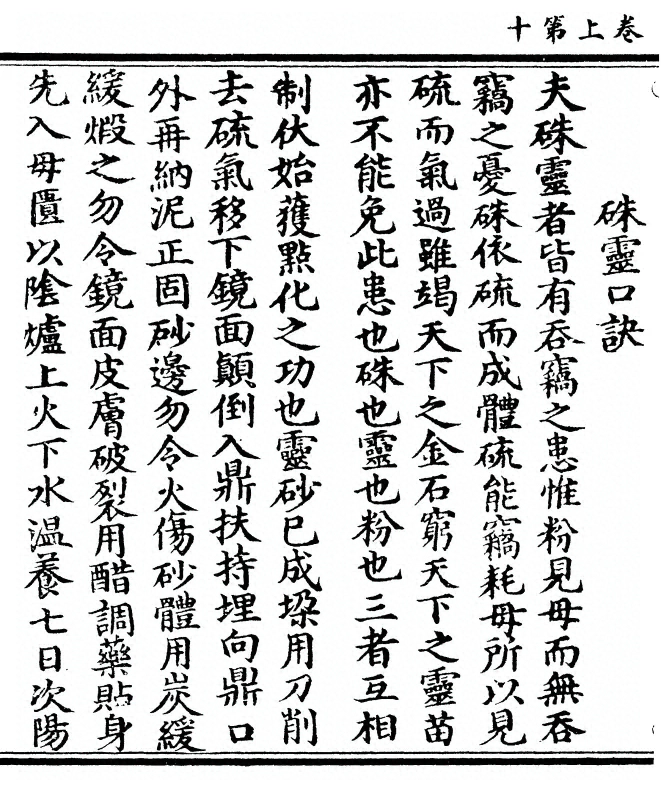 卷上第十
硃靈口訣
夫硃靈者皆有吞竊之患惟粉見母而無吞
竊之憂硃依硫而成體硫能竊耗母所以見
硫而氣過雖竭天下之金石窮天下之靈苗
亦不能免此患也硃也靈也粉也三者互相
制伏始獲點化之功也靈砂已成垜用刀削
去硫氣移下鏡面顛倒入鼎扶持埋向鼎口
外再納泥正固砂邊勿令火傷砂體用炭緩
緩煅之勿令鏡面皮膚破裂用醋調藥貼身
先入母匱以陰爐上火下水温養七日次陽